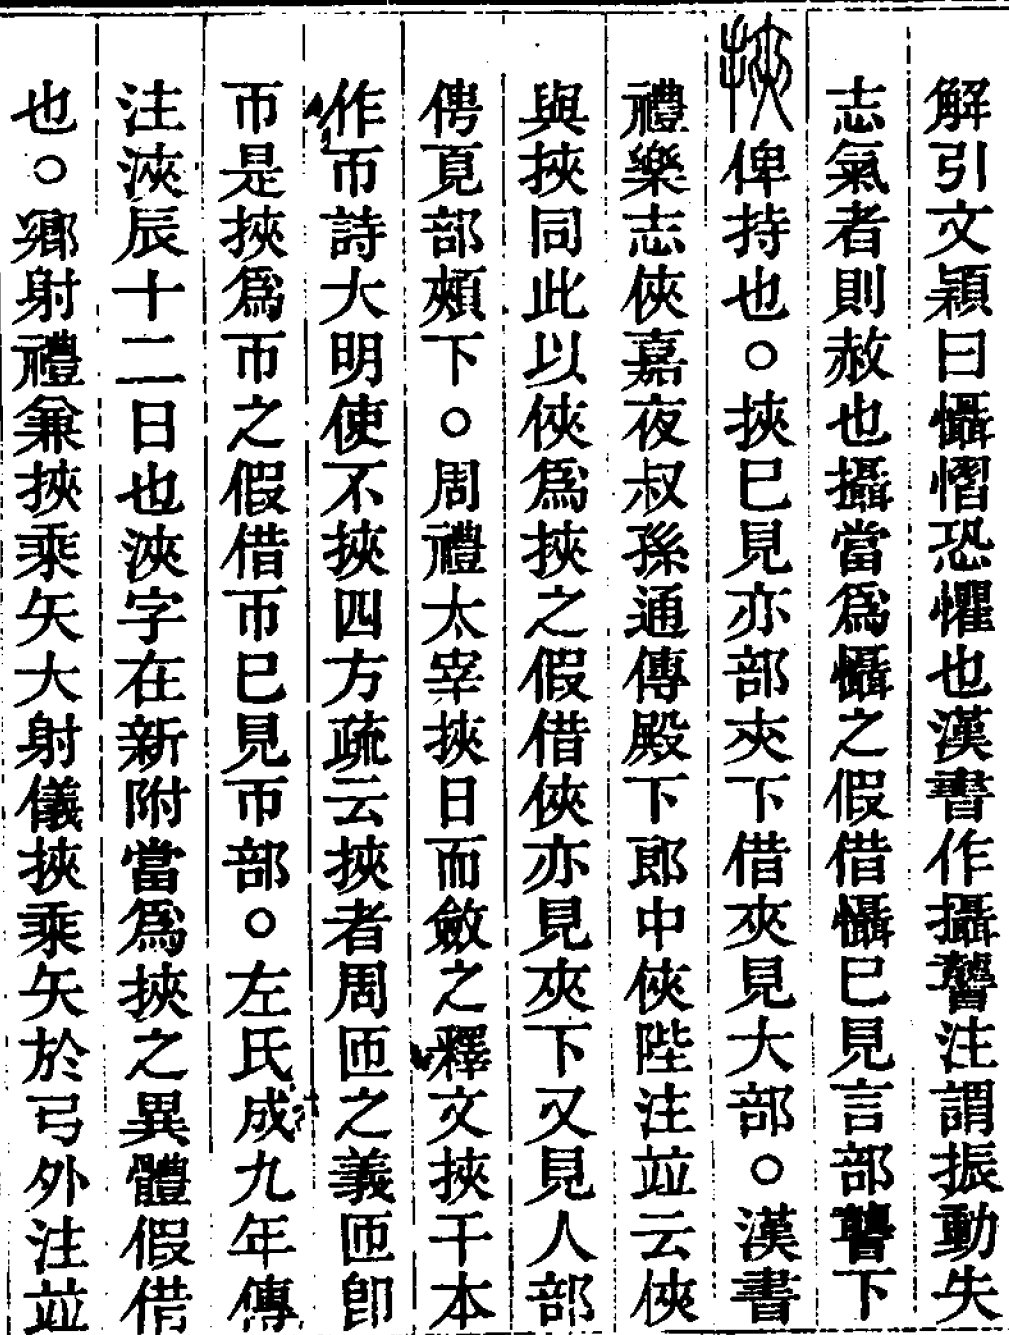 解引文穎曰懾慴恐懼也漢書作攝讋注謂振動失
志氣者則赦也攝當爲懾之假借懾巳見言部讋下
挾俾持也○挾巳見亦部夾下借夾見大部○漢書
禮樂志俠嘉夜叔孫通傳殿下郎中俠陛注竝云俠
與挾同此以俠爲挾之假借俠亦見夾下又見人部
俜頁部頰下○周禮太宰挾日而斂之釋文挾干本
作帀詩大明使不挾四方疏云挾者周匝之義匝卽
帀是挾爲帀之假借帀巳見帀部○左氏成九年傳
注浹辰十二日也浹字在新附當爲挾之異體假借
也○鄉射禮兼挾乘矢大射儀挾乘矢於弓外注竝